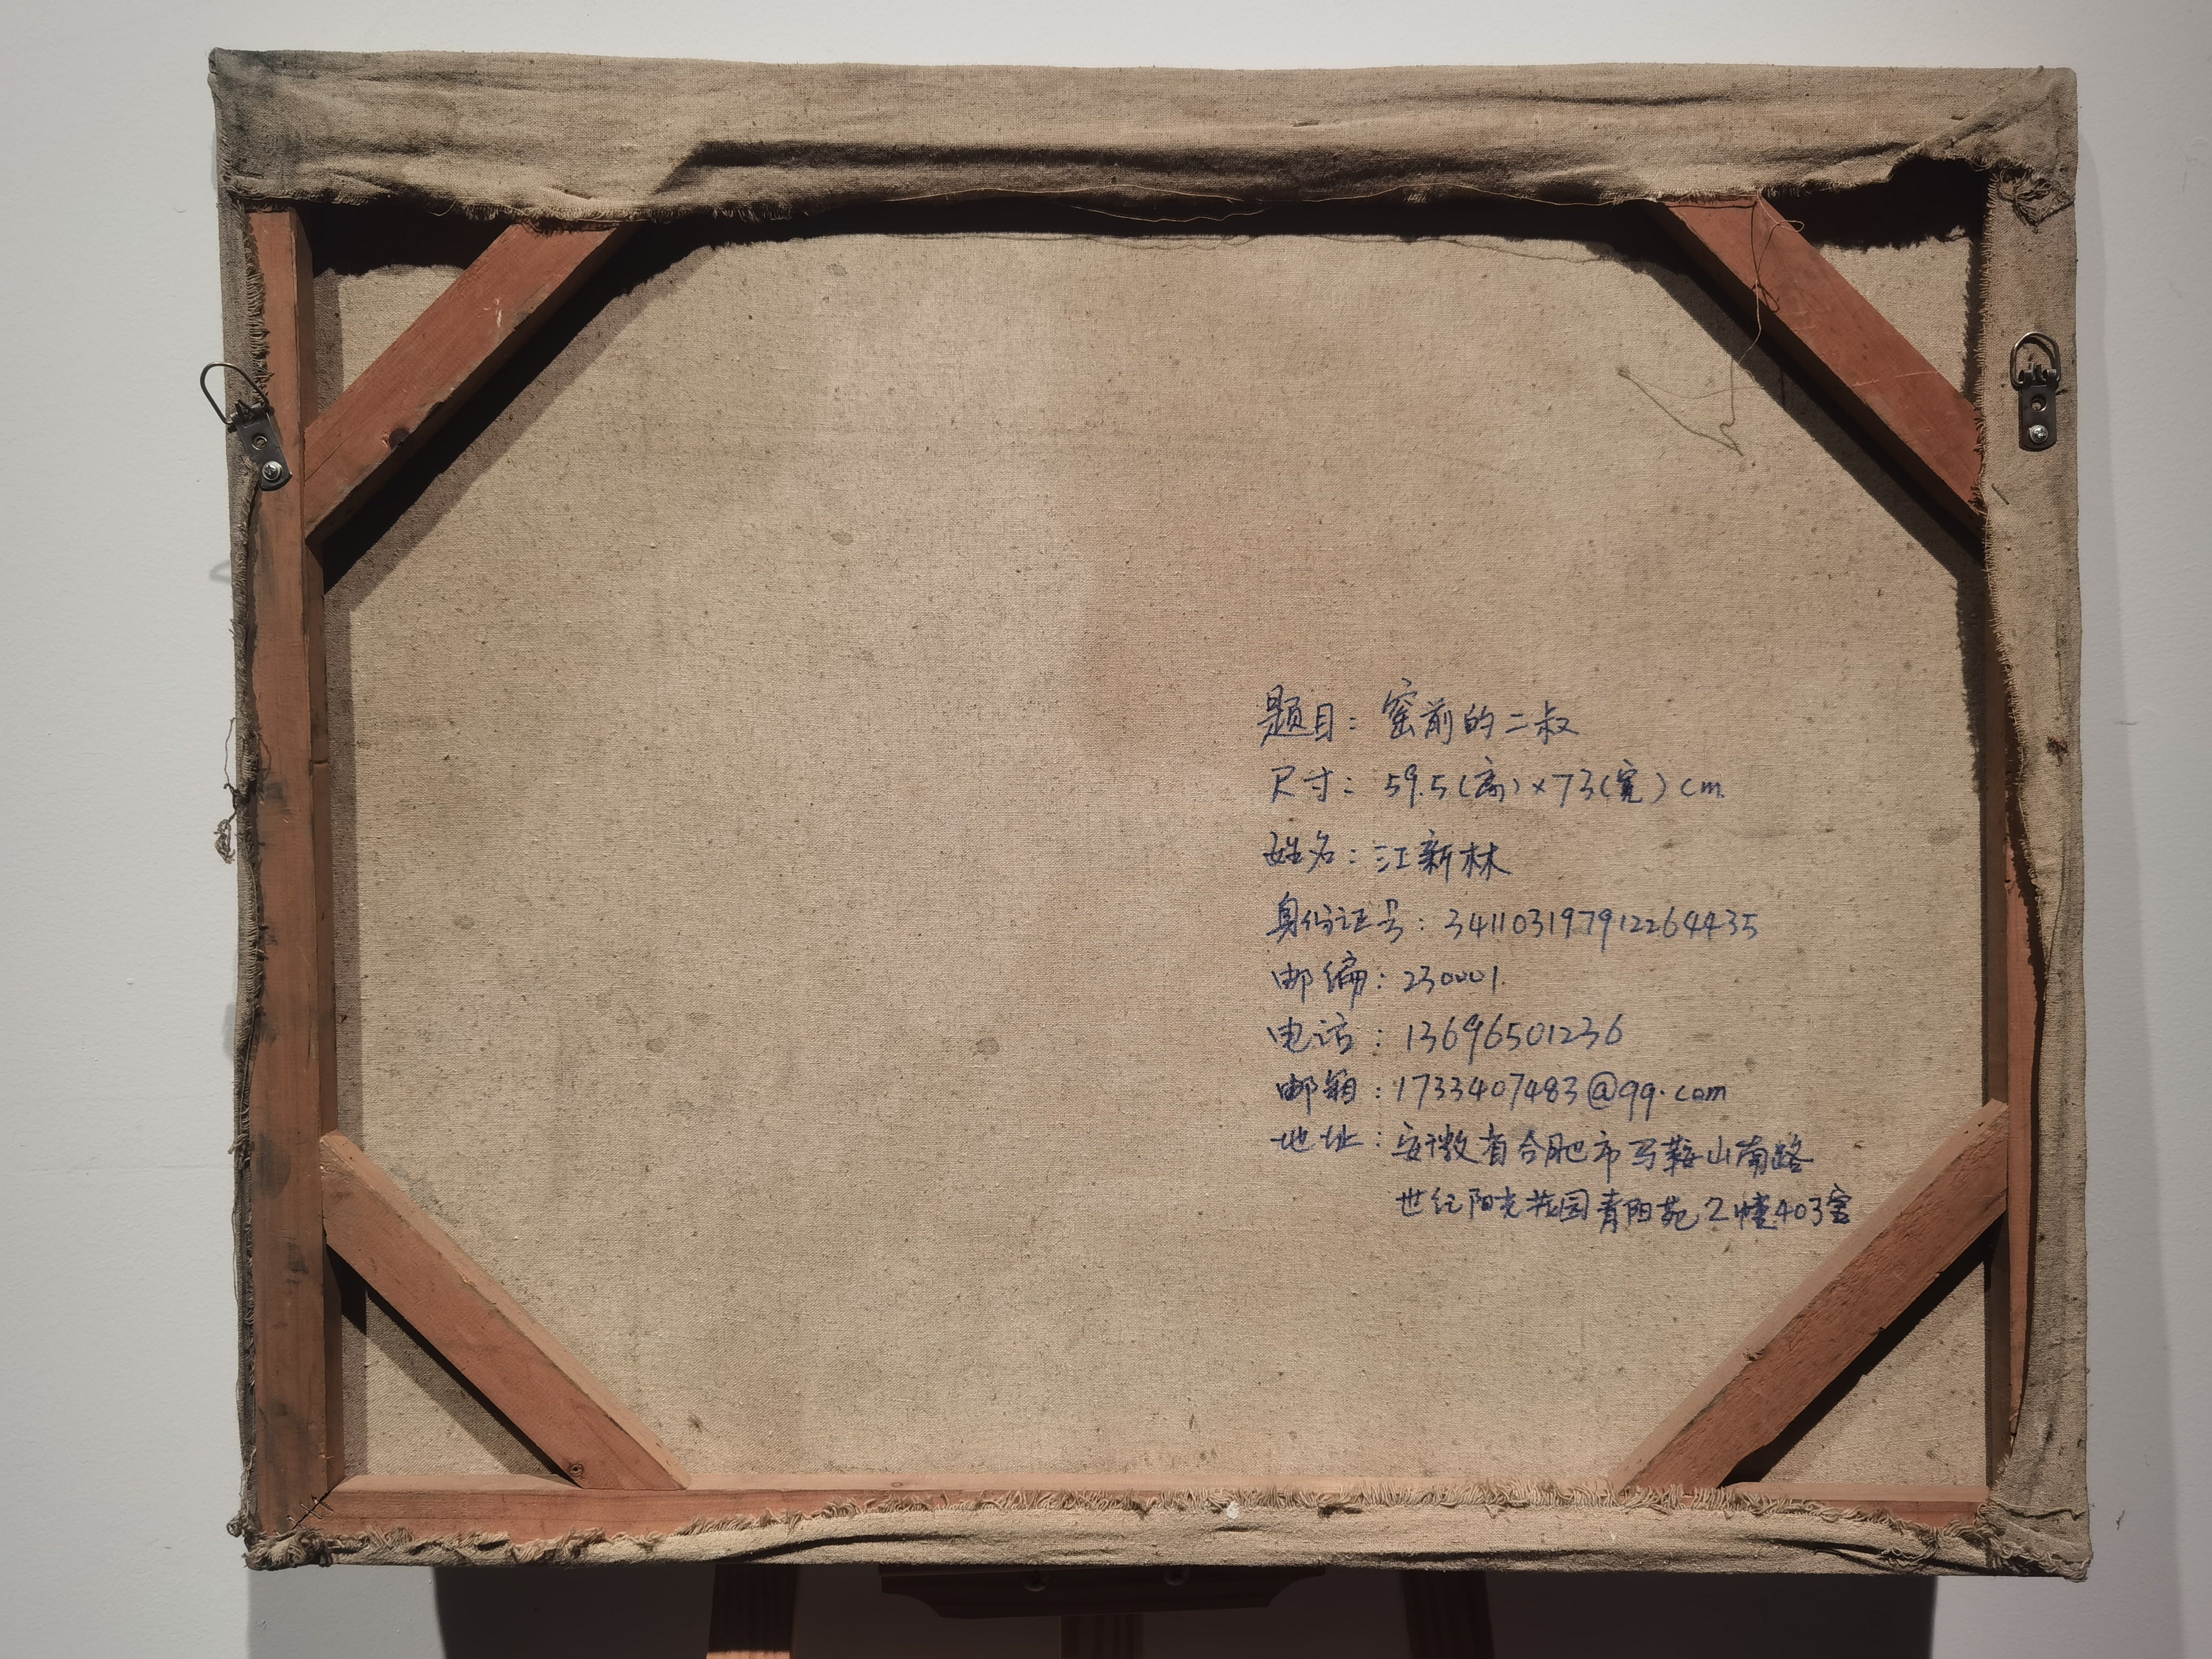 题目：窑前的二叔
尺寸：59.5(高)×73(宽)cm
姓名：江新林
身份证号：341103197912264435
邮编：230001.
电话：13696501236
邮箱：1733407483@qq.com
地址：安徽省合肥市马鞍山南路
世纪阳光花园青阳苑2幢403室